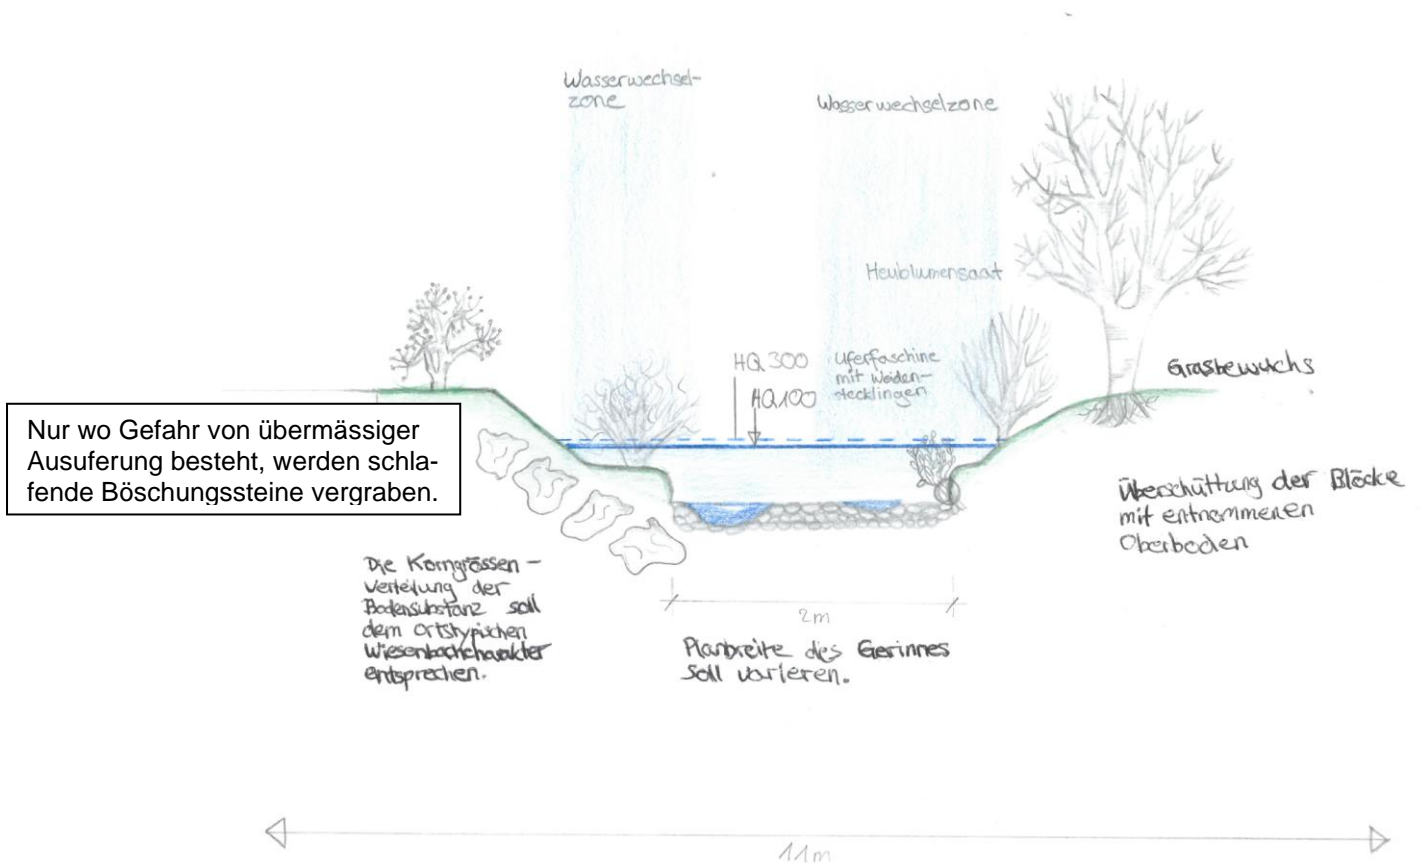 Wasserwechsel-
zone
Wasserwechselzone
Heublumensaat
HQ300
HQ100
Uferfaschine
mit Weiden-
stecklingen
Grasbewuchs
Nur wo Gefahr von übermässiger
Ausuferung besteht, werden schla-
fende Böschungssteine vergraben.
Überschüttung der Blöcke
mit entnommenen
Oberboden
Die Korngrössen-
verteilung der
Bodensubstanz soll
dem ortstypischen
Wiesenbachcharakter
entsprechen.
2m
Planbreite des Gerinnes
soll variieren.
11m